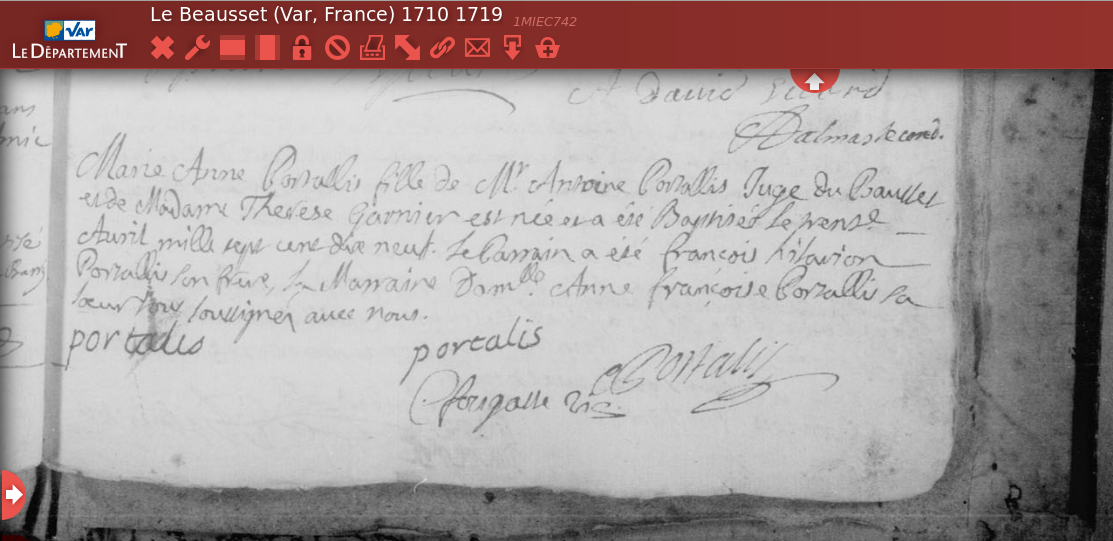 Le Beausset (Var, France) 1710 1719 1MIEC742
VAR
LE DÉPARTEMENT
A David
Dalmas second.
Marie Anne Portallis fille de Mr. Antoine Portallis Juge du Bausset
et de Madame Therese Garnier est née et a été Baptisée le trente
Auril mille sept cens dix neuf. Le Parrain a eté françois hilarion
Portallis son frere, La Marraine Damlle. Anne françoise Portallis sa
sœur tous soussignés auec nous.
portalis portalis Portalis
vic.